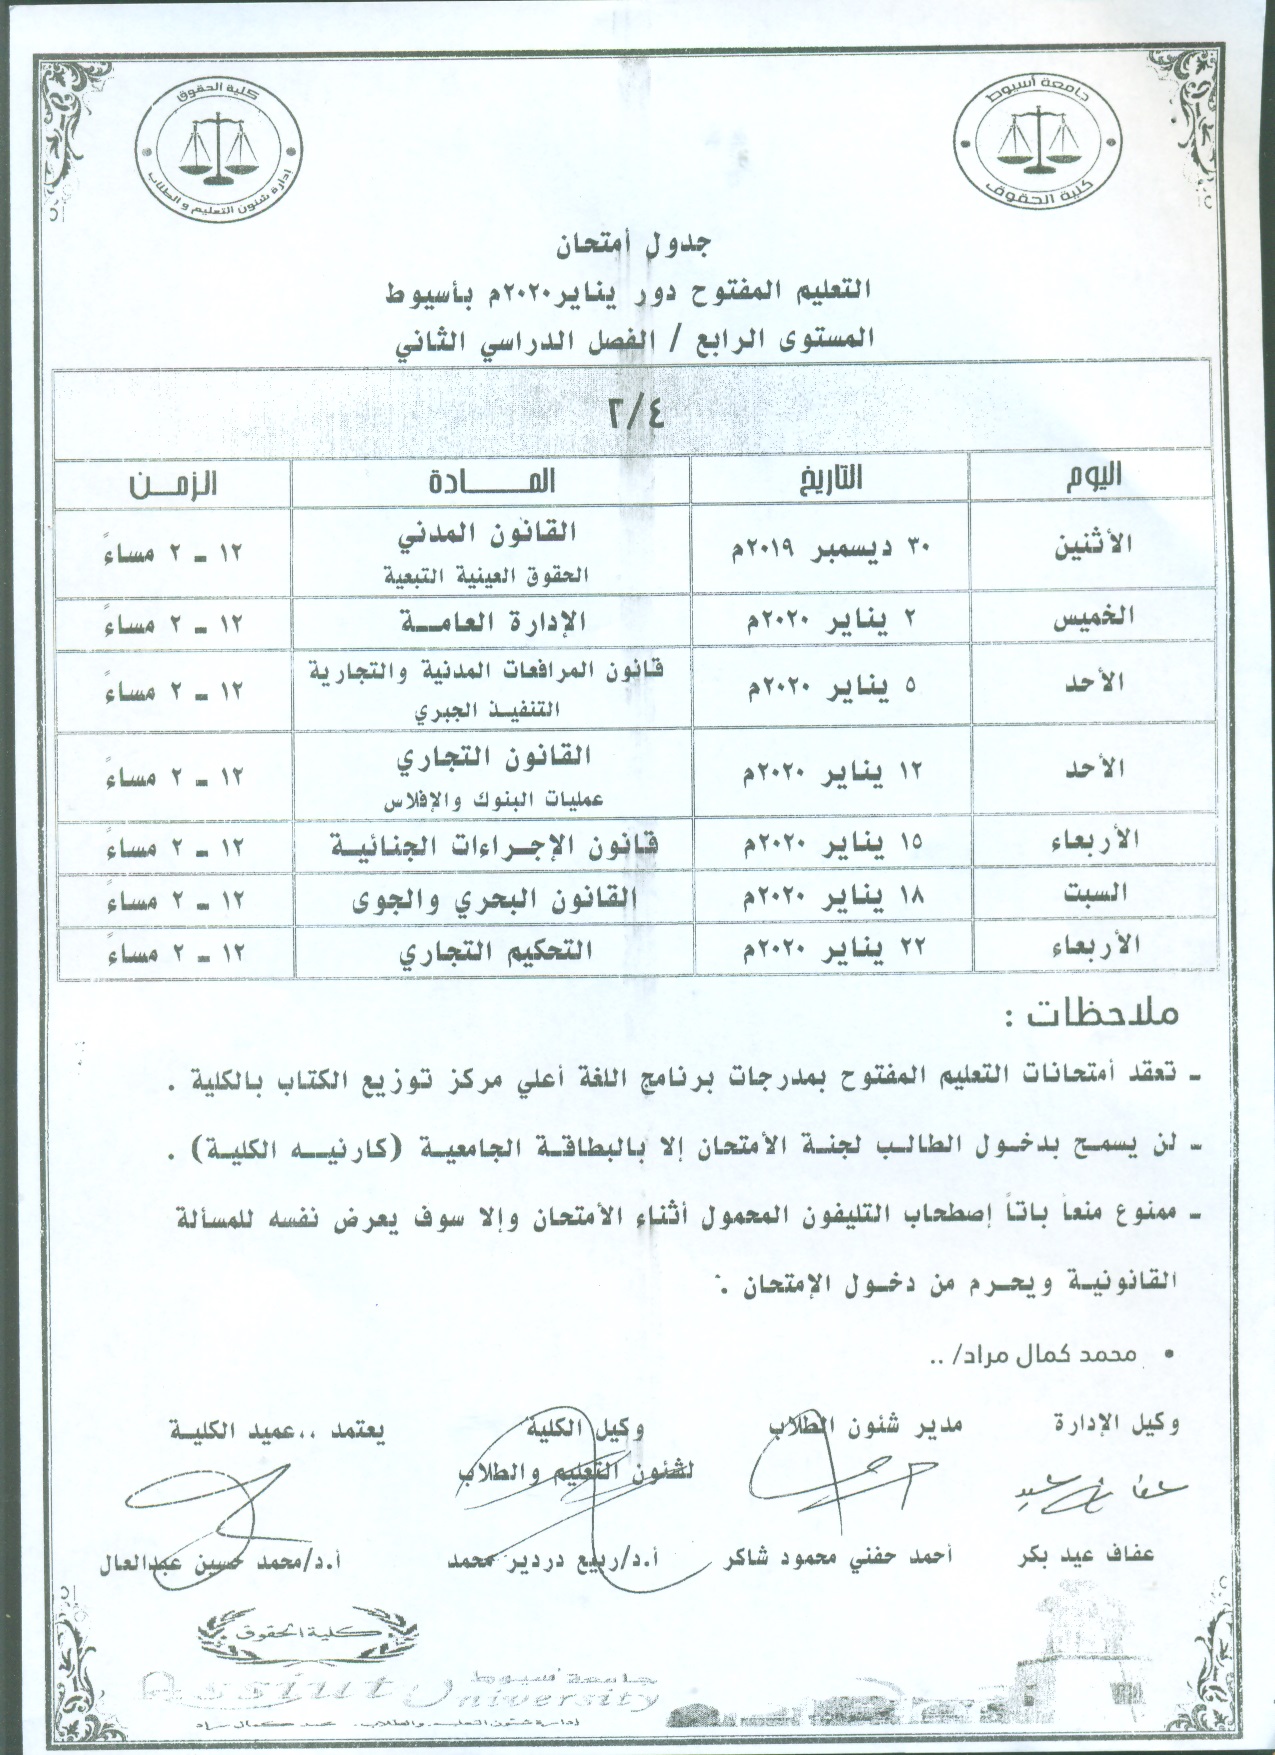 جامعة أسيوط
كلية الحقوق
كلية الحقوق
إدارة شئون التعليم والطلاب
جدول أمتحان
التعليم المفتوح دور يناير٢٠٢٠م بأسيوط
المستوى الرابع / الفصل الدراسي الثاني
٢/٤
اليوم التاريخ المـــــادة الزمـــن
الأثنين ٣٠ ديسمبر ٢٠١٩م القانون المدني ١٢ ـ ٢ مساءً
الحقوق العينية التبعية
الخميس ٢ يناير ٢٠٢٠م الإدارة العامــة ١٢ ـ ٢ مساءً
الأحد ٥ يناير ٢٠٢٠م قانون المرافعات المدنية والتجارية ١٢ ـ ٢ مساءً
التنفيذ الجبري
الأحد ١٢ يناير ٢٠٢٠م القانون التجاري ١٢ ـ ٢ مساءً
عمليات البنوك والإفلاس
الأربعاء ١٥ يناير ٢٠٢٠م قانون الإجـراءات الجنائيـة ١٢ ـ ٢ مساءً
السبت ١٨ يناير ٢٠٢٠م القانون البحري والجوى ١٢ ـ ٢ مساءً
الأربعاء ٢٢ يناير ٢٠٢٠م التحكيم التجاري ١٢ ـ ٢ مساءً
ملاحظات :
ـ تعقد أمتحانات التعليم المفتوح بمدرجات برنامج اللغة أعلي مركز توزيع الكتاب بالكلية .
ـ لن يسمح بدخول الطالب لجنة الأمتحان إلا بالبطاقة الجامعية (كارنيـه الكلية) .
ـ ممنوع منعاً باتاً إصطحاب التليفون المحمول أثناء الأمتحان وإلا سوف يعرض نفسه للمسألة
القانونية ويحرم من دخول الإمتحان .
• محمد كمال مراد/ ..
وكيل الإدارة مدير شئون الطلاب وكيل الكلية يعتمد ..عميد الكليـة
لشئون التعليم والطلاب
عفاف عيد
عفاف عيد بكر أحمد حفني محمود شاكر أ.د/ربيع دردير محمد أ.د/محمد حسين عبدالعال
كلية الحقوق
جامعة أسيوط
Assiut University